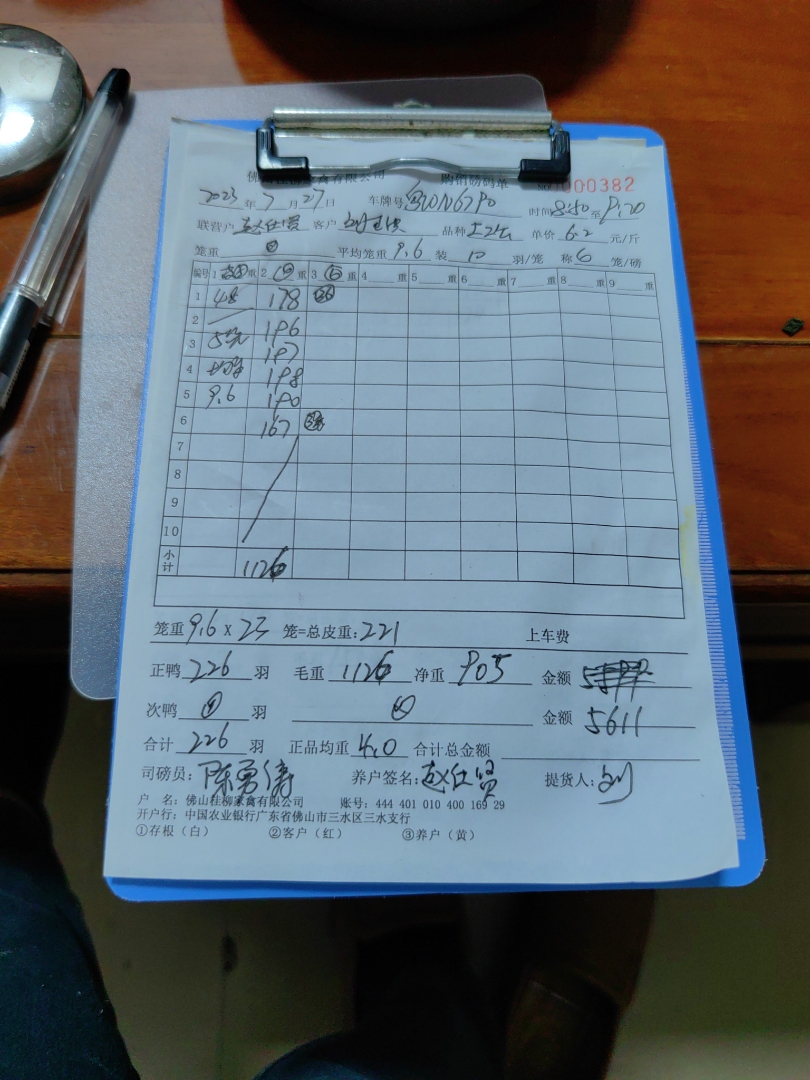 佛山桂柳家禽有限公司 购销磅码单 000382
2023 年 7 月 27 日 车牌号 时间 8:40 至 9:20
联营户 赵仕贤 客户 品种 单价 6.2 元/斤
笼重 平均笼重 9.6 装 10 羽/笼 称 6 笼/磅
编号 1 重 2 重 3 重 4 重 5 重 6 重 7 重 8 重 9 重
1 48 178
2 196
3 197
4 198
5 9.6 190
6 167
7
8
9
10
小计 1126
笼重 9.6 x 23 笼=总皮重: 221 上车费
正鸭 226 羽 毛重 1126 净重 905 金额
次鸭 羽 金额 5611
合计 226 羽 正品均重 4.0 合计总金额
司磅员: 陈勇涛 养户签名: 赵仕贤 提货人: 刘
户 名: 佛山桂柳家禽有限公司 账号: 444 401 010 400 169 29
开户行: 中国农业银行广东省佛山市三水区三水支行
①存根（白） ②客户（红） ③养户（黄）